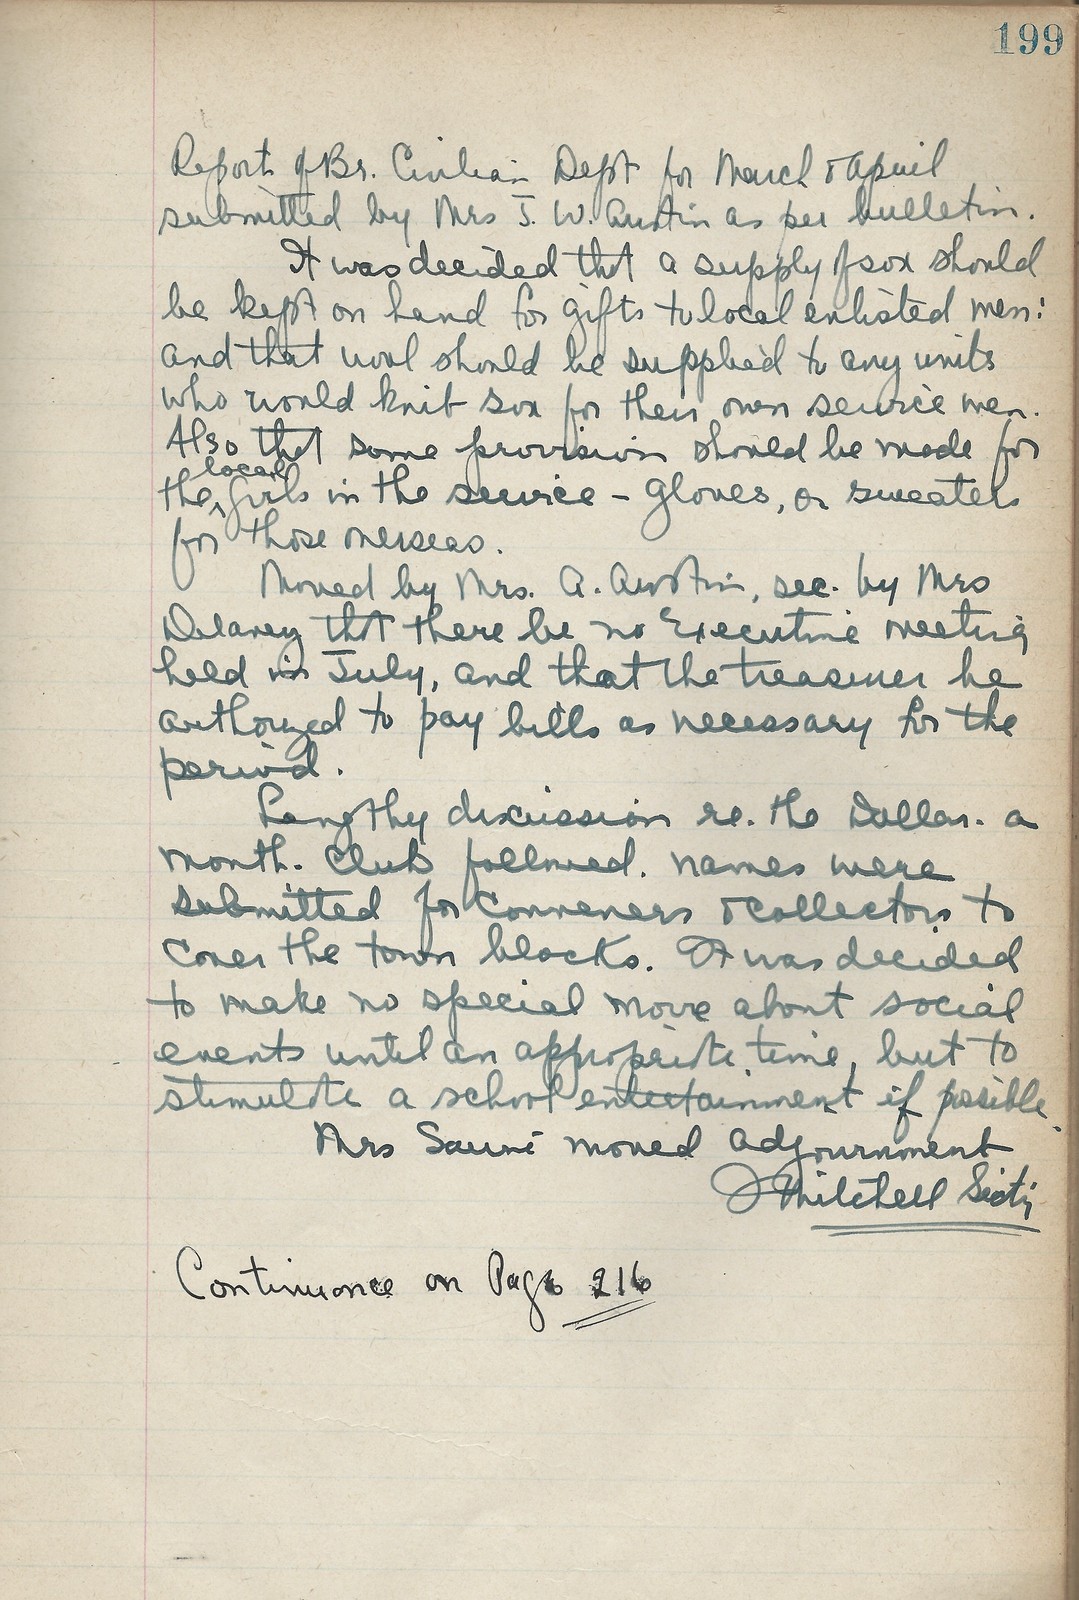 199
Report of Br. Civilian Dept for March & April
submitted by Mrs J. W. Austin as per bulletin.
It was decided that a supply of sox should
be kept on hand for gifts to local enlisted men:
and that wool should be supplied to any units
who would knit sox for their own service men.
Also that some provision should be made for
local
the ‸ girls in the service - gloves, or sweaters
for those overseas.
Moved by Mrs. A. Austin, sec. by Mrs
Delaney that there be no Executive meeting
held in July, and that the treasurer be
authorized to pay bills as necessary for the
period.
Lengthy discussion re. the Dollar. a
month. Club followed. names were
submitted for Conveners & collectors to
cover the town blocks. It was decided
to make no special move about social
events until an appropriate time, but to
stimulate a school entertainment if possible.
Mrs moved adjournment
J Mitchell Secty
Continuance on Page 216